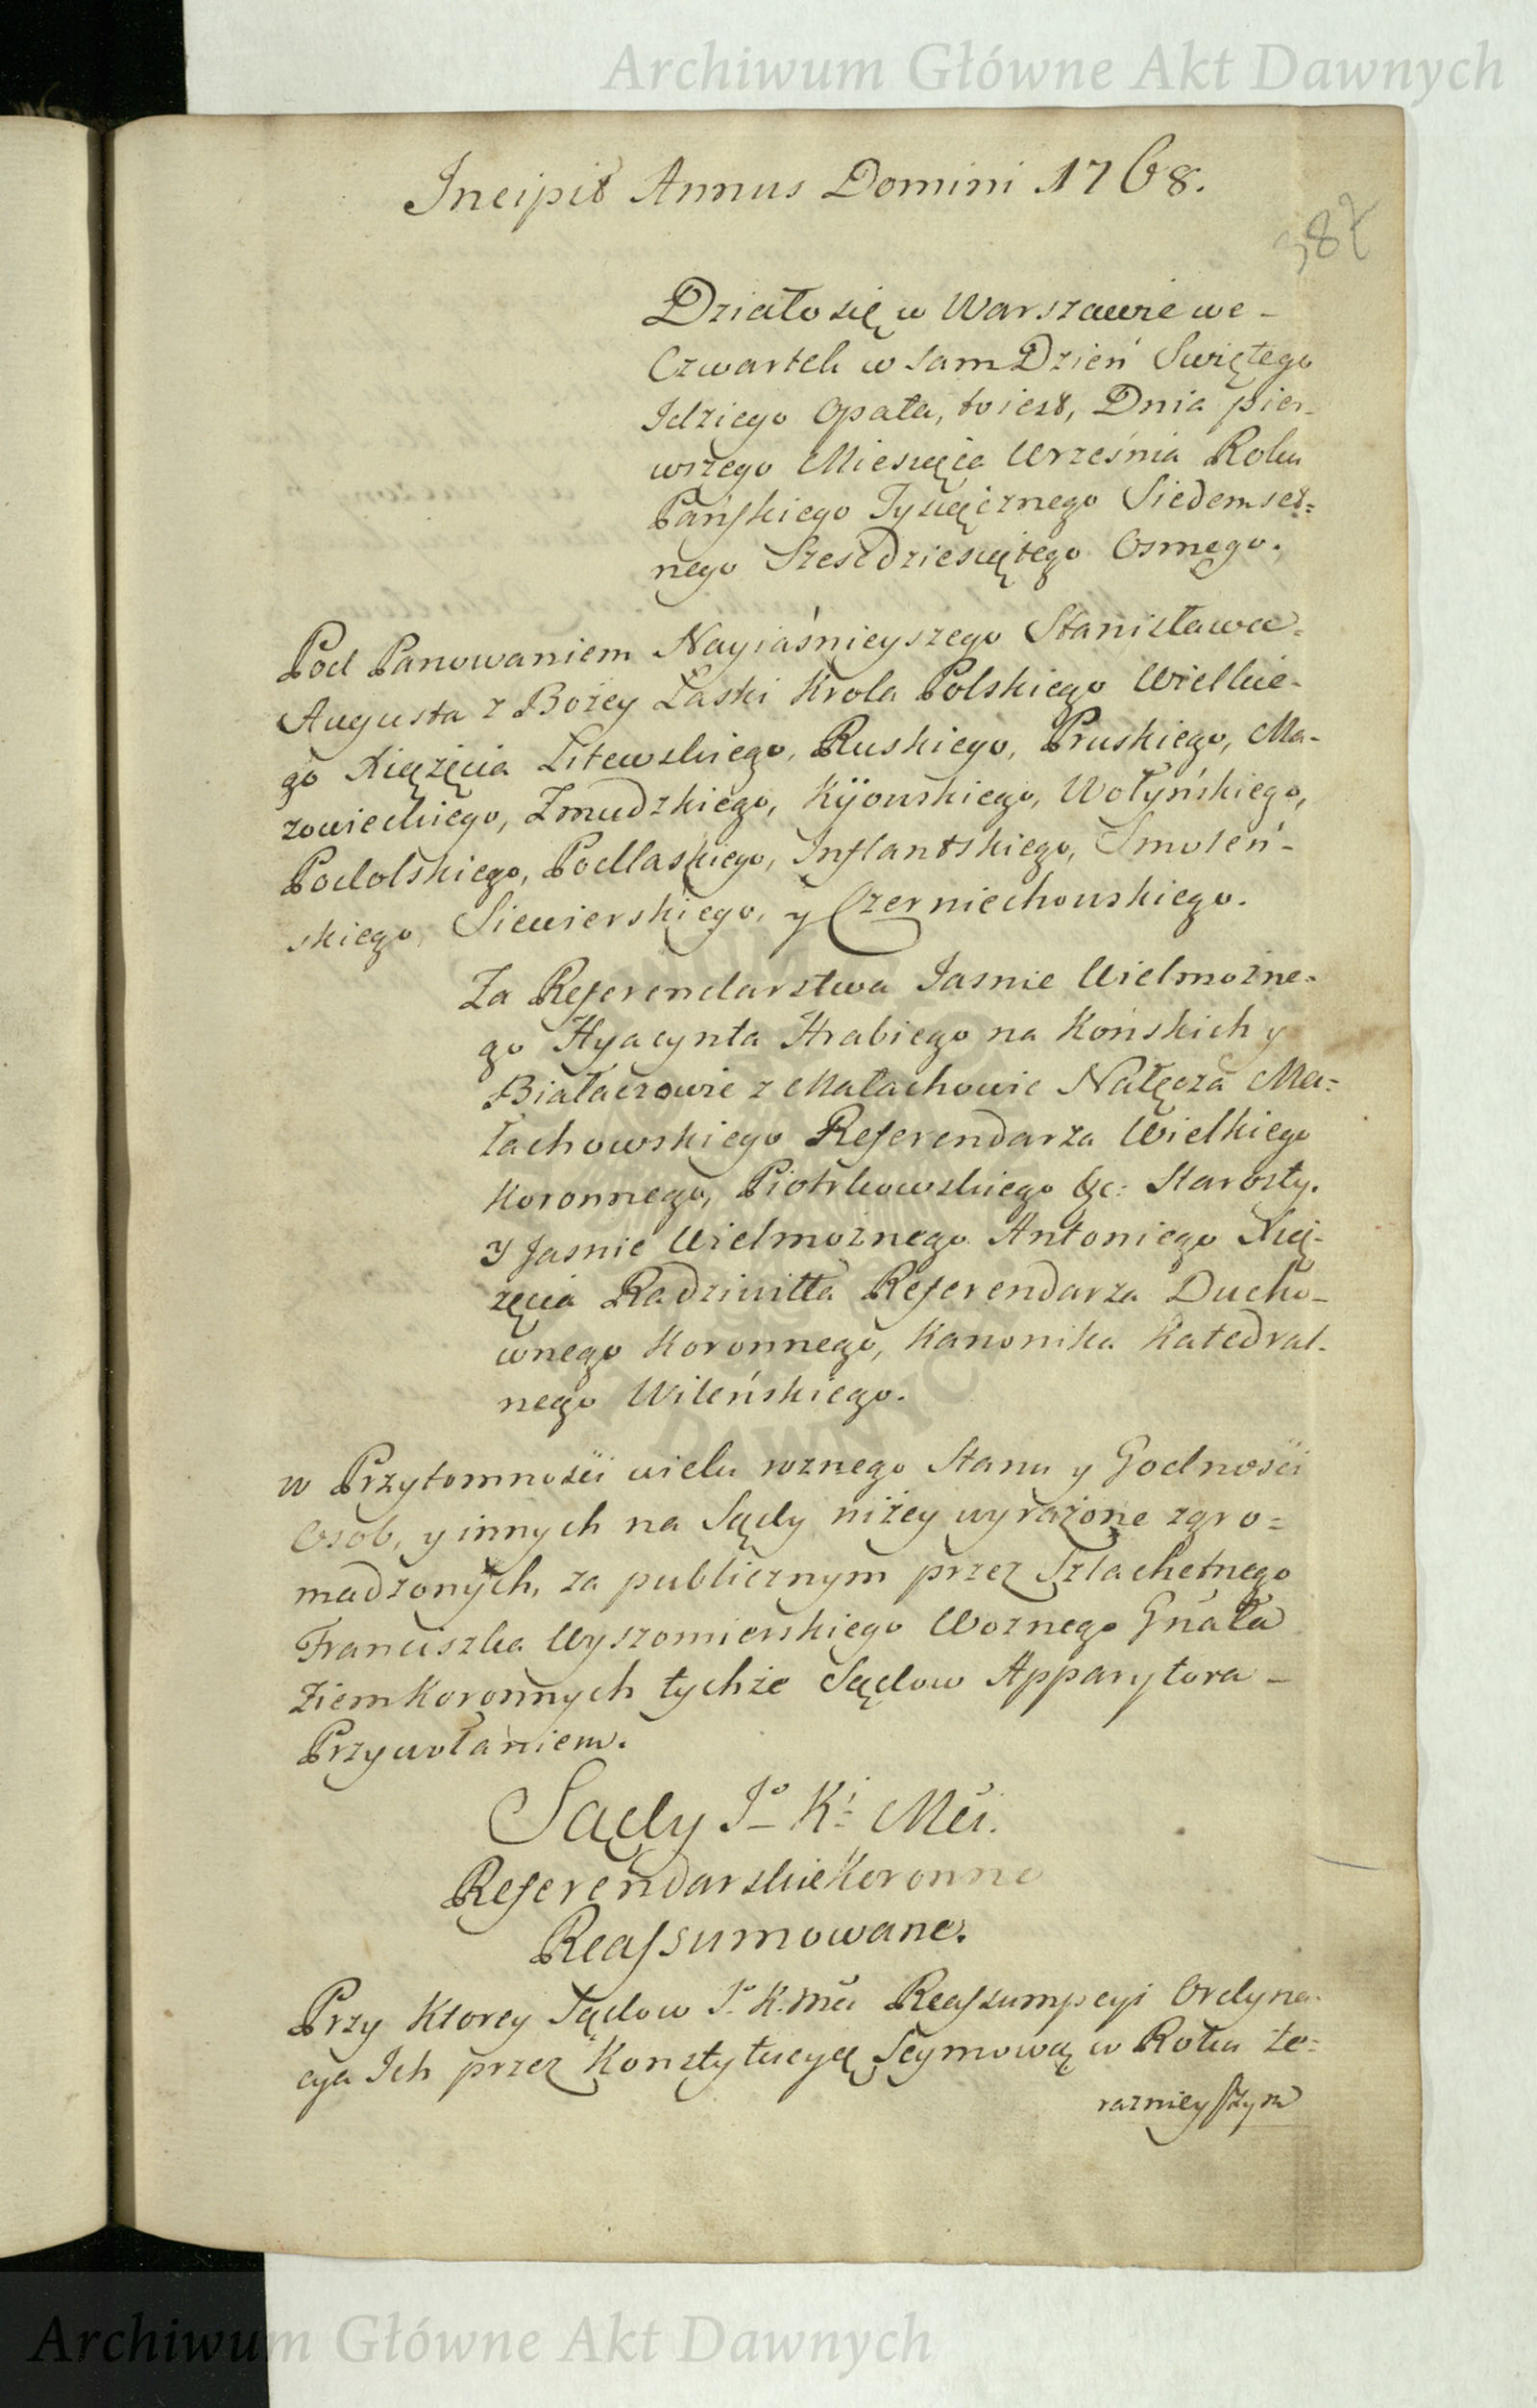 Archiwum Główne Akt Dawnych
Incipit Annus Domini 1768.
Działo się w Warszawie we -
Czwartek w sam Dzień Swiętego
Idziego Opata, to iest, Dnia pier-
wszego Miesiąca Września Roku
Pańskiego Tysiącznego Siedemset=
nego Szescdziesiątego Osmego.
Pod Panowaniem Nayiaśnieyszego Stanisława=
Augusta z Bożey Łaski Krola Polskiego Wielkie-
go Xiążęcia Litewskiego, Ruskiego, Pruskiego, Ma-
zowieckiego, Zmudzkiego, Kijowskiego, Wołyńskiego,
Podolskiego, Podlaskiego, Inflantskiego, Smoleń-
skiego, Siewierskiego, y Czerniechowskiego.
Za Referendarstwa Jasnie Wielmożne-
go Hyacynta Hrabiego na Końskich y
Białaczowie z Małachowic Nałęcza Ma=
łachowskiego Referendarza Wielkiego
Koronnego, Piotrkowskiego &c: Starosty.
y Jasnie Wielmożnego Antoniego Xią-
żęcia Radziwiłła Referendarza Ducho-
wnego Koronnego, Kanonika Katedral-
nego Wileńskiego.
w Przytomności wielu roznego Stanu y Godności
Osob, y innych na Sądy niżey wyrażone zgro=
madzonych, za publicznym przez Szlachetnego
Franciszka Wyszomierskiego Woznego Gńała
Ziem Koronnych tychże Sądow Apparytora -
Przywołaniem.
Sądy Jº K: Mći.
Referendarskie Koronne
Reassumowane.
Przy Ktorey Sądow Jº K: Mći Reassumpcyi Ordyna-
cya Ich przez Konstytucyą Seymową w Roku te=
raznieyszym
Archiwum Główne Akt Dawnych